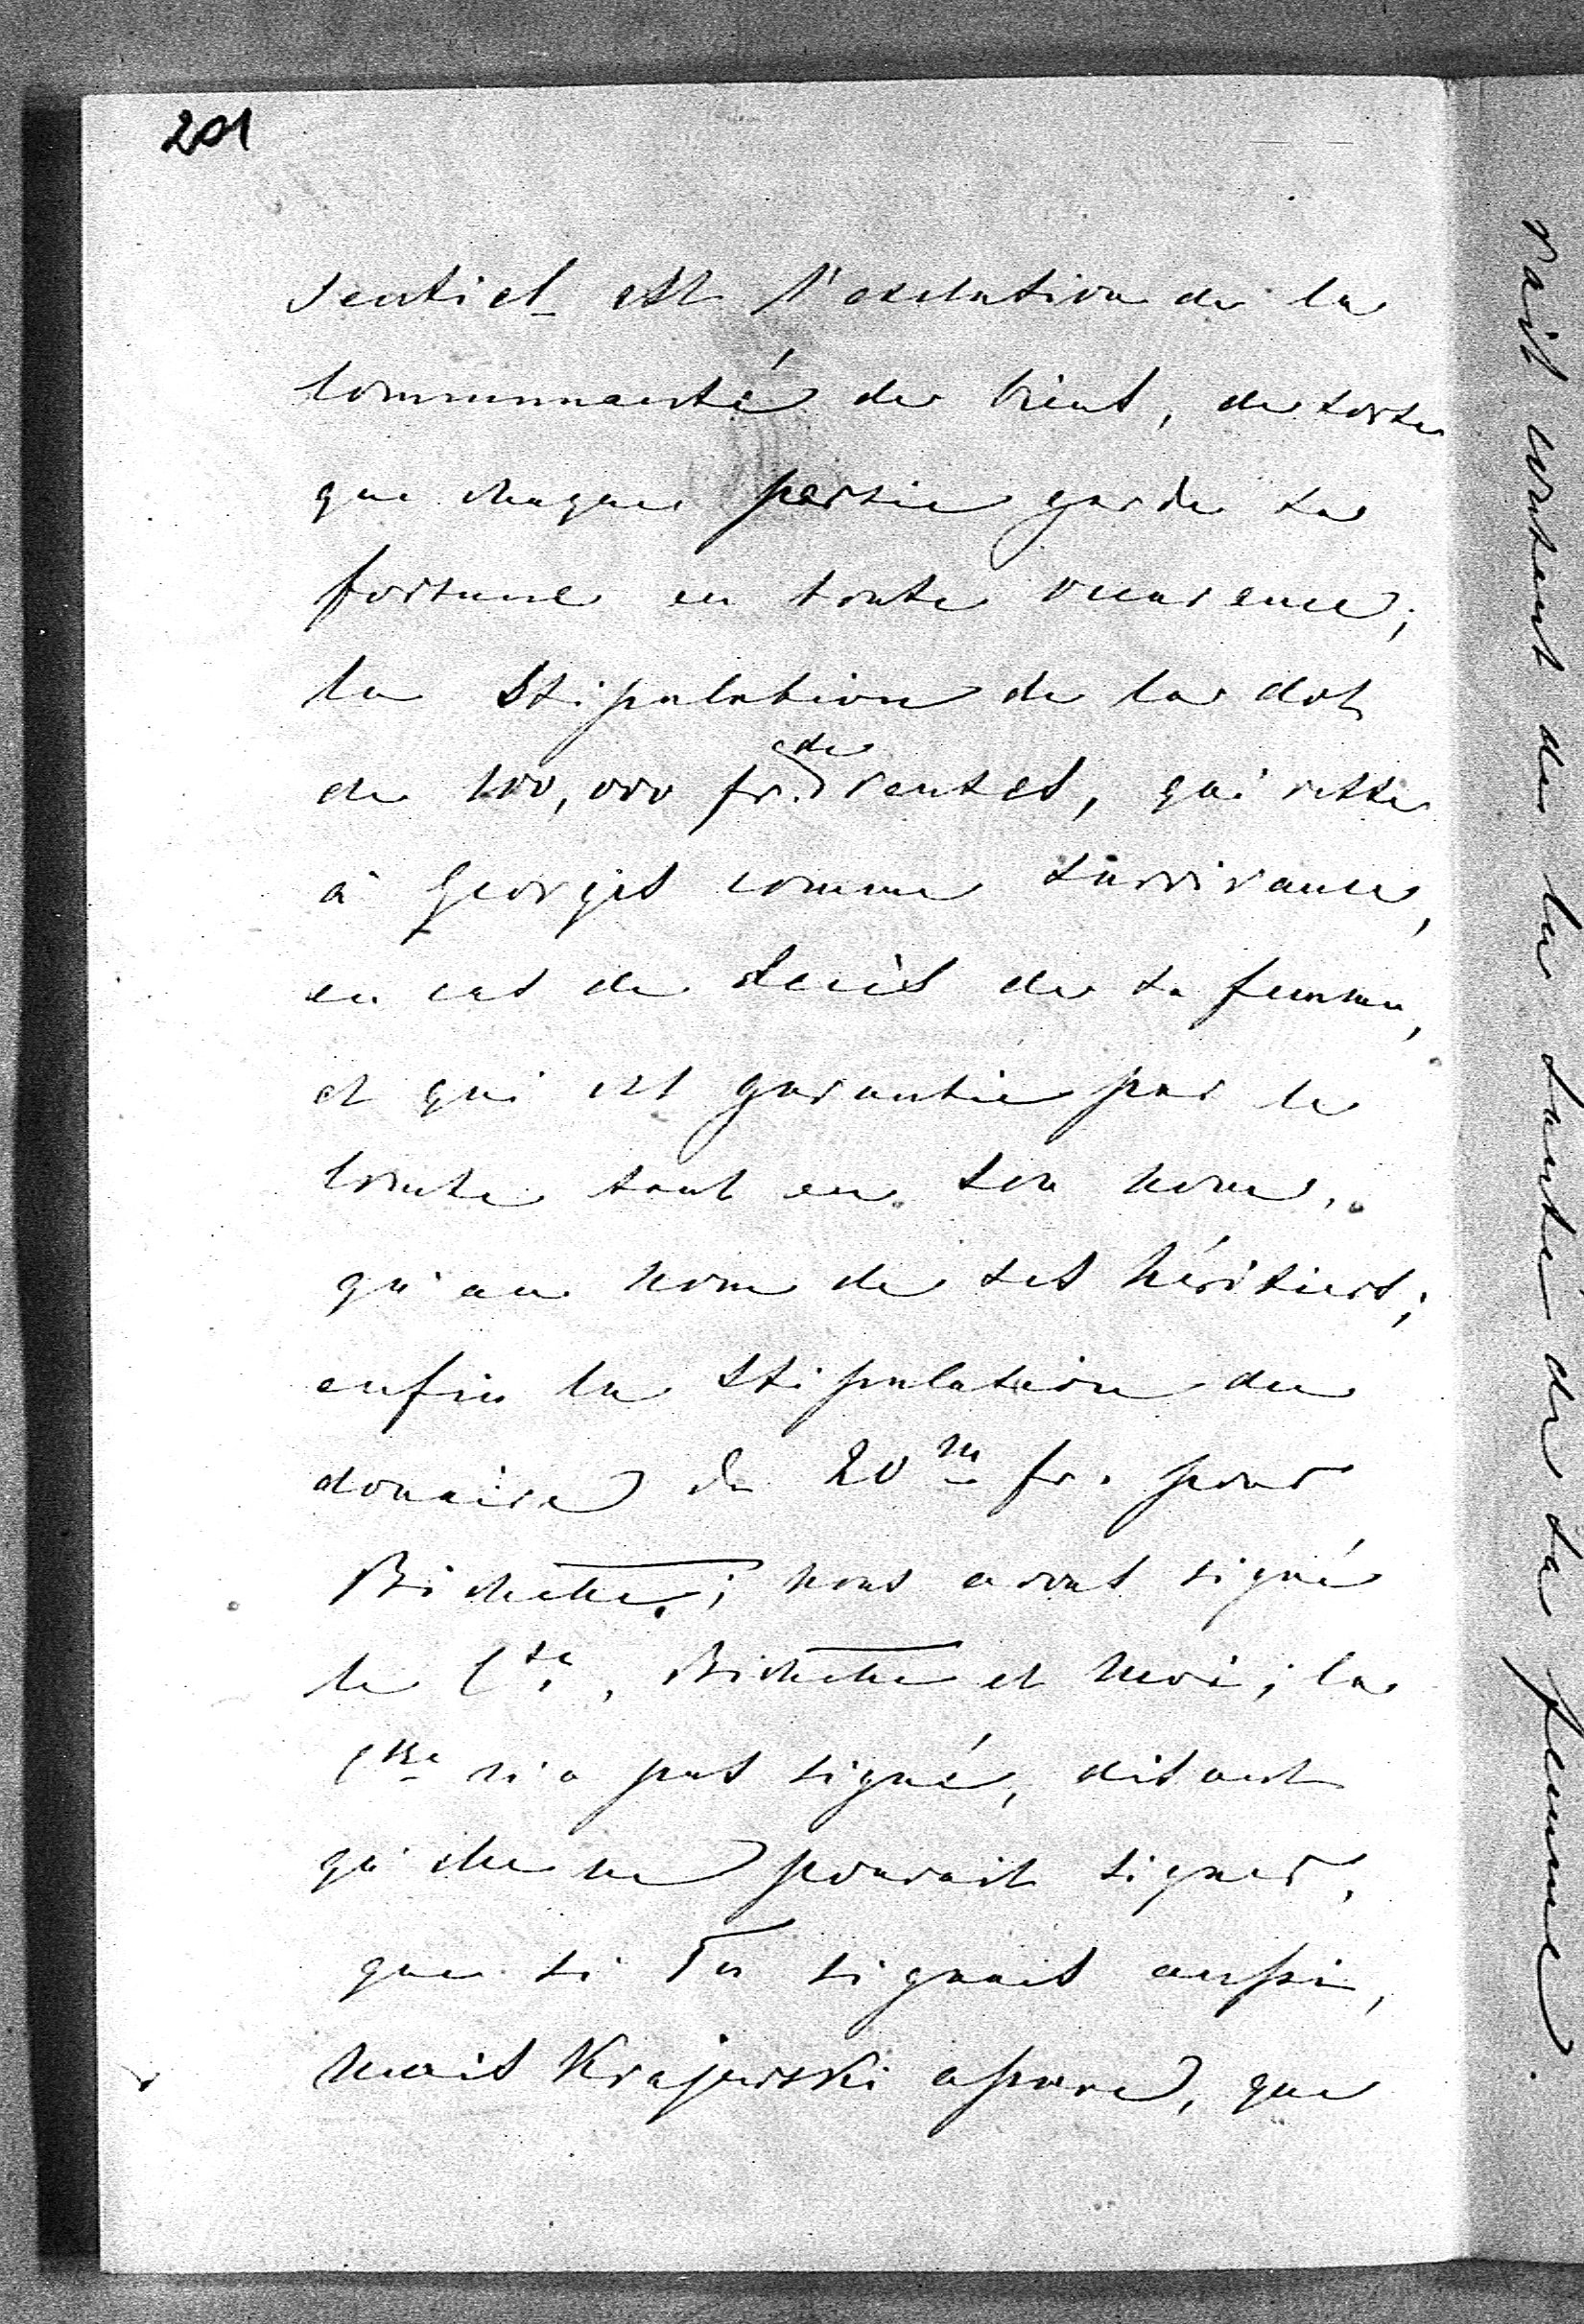 201
sentiel est l'exclution de la
communauté de biens, de sorte
que chaque partie garde sa
fortune en toute occurence;
la stipulation de la dot
de 100,000 fr. de rentes, qui reste
à Georges comme survivance,
en cas de decès de sa femme,
et qui est garantie par le
comte tant en son nom,
qu'au nom de ses héritiers;
enfin la stipulation du
douaire de 20m fr. pour
Bichette; nous avons signé
le Cte, Bichette et moi; la
Ctsse n'a pas signé, disant
qu'elle ne pouvait signer,
que si Tu signais aussi,
mais Krajewski assure, que
rait content de la santé de sa femme.